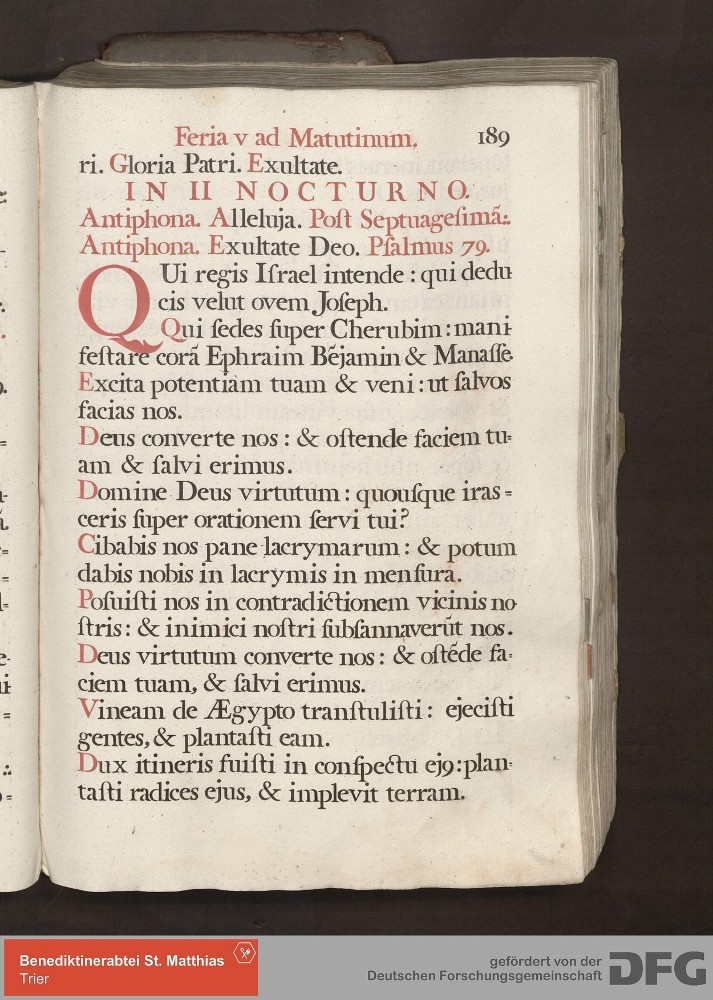 Feria v ad Matutinum. 189
ri. Gloria Patri. Exultate.
IN II NOCTURNO.
Antiphona. Alleluja. Poſt Septuageſimã:.
Antiphona. Exultate Deo. Pſalmus 79.
QUi regis Iſrael intende : qui dedu-
cis velut ovem Joſeph.
Qui ſedes ſuper Cherubim : mani-
feſtare corã Ephraim Bẽjamin & Manaſſe.
Excita potentiam tuam & veni : ut ſalvos
facias nos.
Deus converte nos : & oſtende faciem tu=
am & ſalvi erimus.
Domine Deus virtutum : quouſque iras=
ceris ſuper orationem ſervi tui?
Cibabis nos pane lacrymarum : & potum
dabis nobis in lacrymis in menſura.
Poſuiſti nos in contradictionem vicinis no
ſtris : & inimici noſtri ſubſannaverũt nos.
Deus virtutum converte nos : & oſtẽde fa-
ciem tuam, & ſalvi erimus.
Vineam de Ægypto tranſtuliſti : ejeciſti
gentes, & plantaſti eam.
Dux itineris fuiſti in conſpectu ej9 : plan-
taſti radices ejus, & implevit terram.
Benediktinerabtei St. Matthias
Trier
gefördert von der
Deutschen Forschungsgemeinschaft
DFG